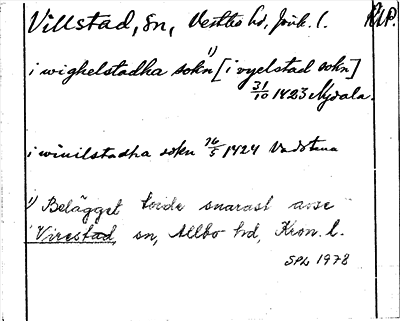 Villstad, sn, Västbo hd, Jönk. l. RAP.
1)
i wighelstadha sokn [i vyelstad sokn]
31/10 1423 Nydala.
i winilstadha sokn 16/5 1424 Vadstena
1) Belägget torde snarast avse
Virestad, sn, Allbo hd, Kron. l.
SPL 1978